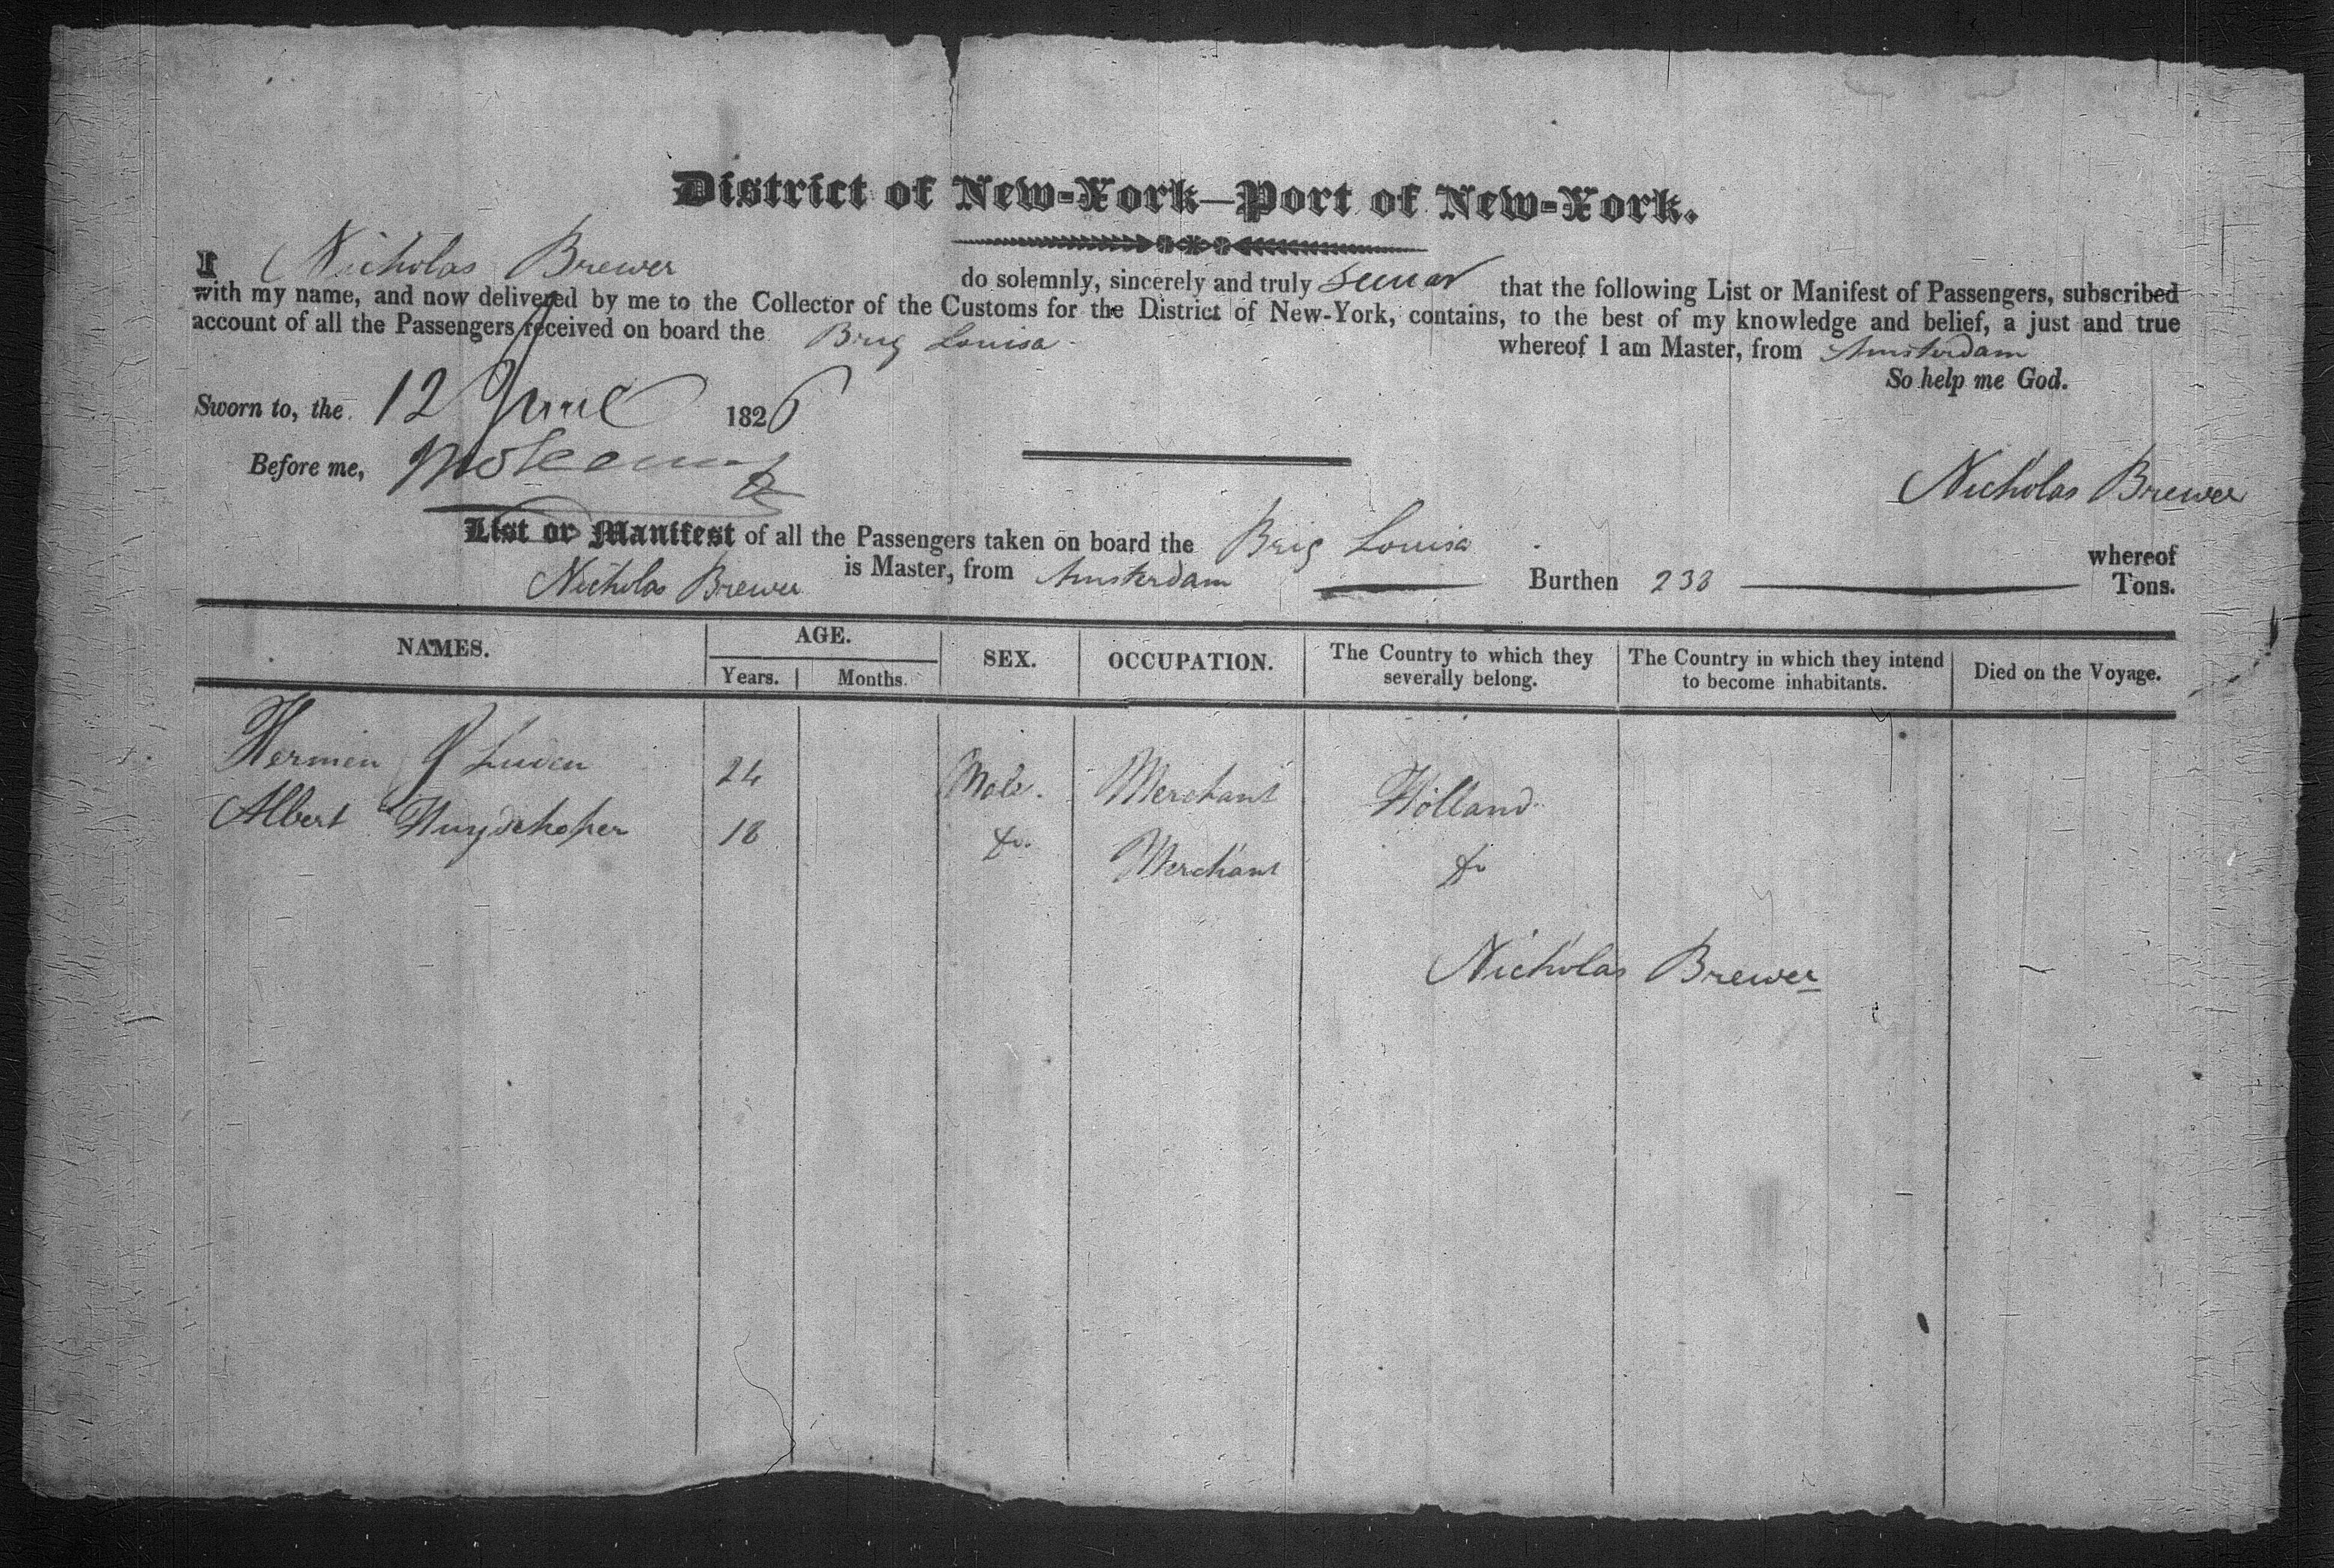 District of New-York—Port of New-York.
I Nicholas Brewer do solemnly, sincerely and truly swear that the following List or Manifest of Passengers, subscribed
with my name, and now delivered by me to the Collector of the Customs for the District of New-York, contains, to the best of my knowledge and belief, a just and true
account of all the Passengers received on board the Brig Louisa whereof I am Master, from Amsterdam
So help me God.
Sworn to, the 12 April 1826
Before me,
Nicholas Brewer
List or Manifest of all the Passengers taken on board the Brig Louisa whereof
Nicholas Brewer is Master, from Amsterdam Burthen 238 Tons.
NAMES. AGE. SEX. OCCUPATION. The Country to which they severally belong. The Country in which they intend to become inhabitants. Died on the Voyage.
Years. Months.
Hermen J Luden 24 Male. Merchant Holland
Albert Huydekoper 18 do. Merchant do
Nicholas Brewer